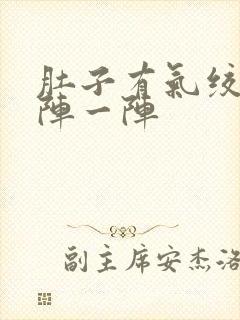 肚子有氣絞
陣一陣
副主席安杰洛